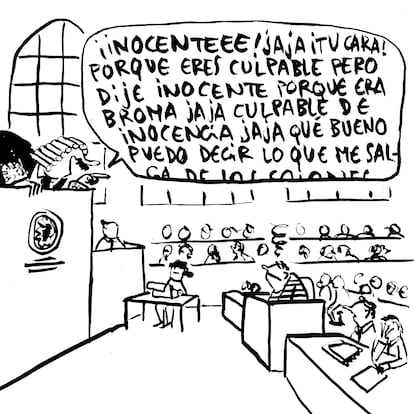 ¡¡INOCENTEEE! ¡JAJA ¡TU CARA!
PORQUE ERES CULPABLE PERO
DIJE INOCENTE PORQUE ERA
BROMA JAJA CULPABLE DE
INOCENCIA JAJA QUÉ BUENO
PUEDO DECIR LO QUE ME SAL-
GA DE LOS COJONES